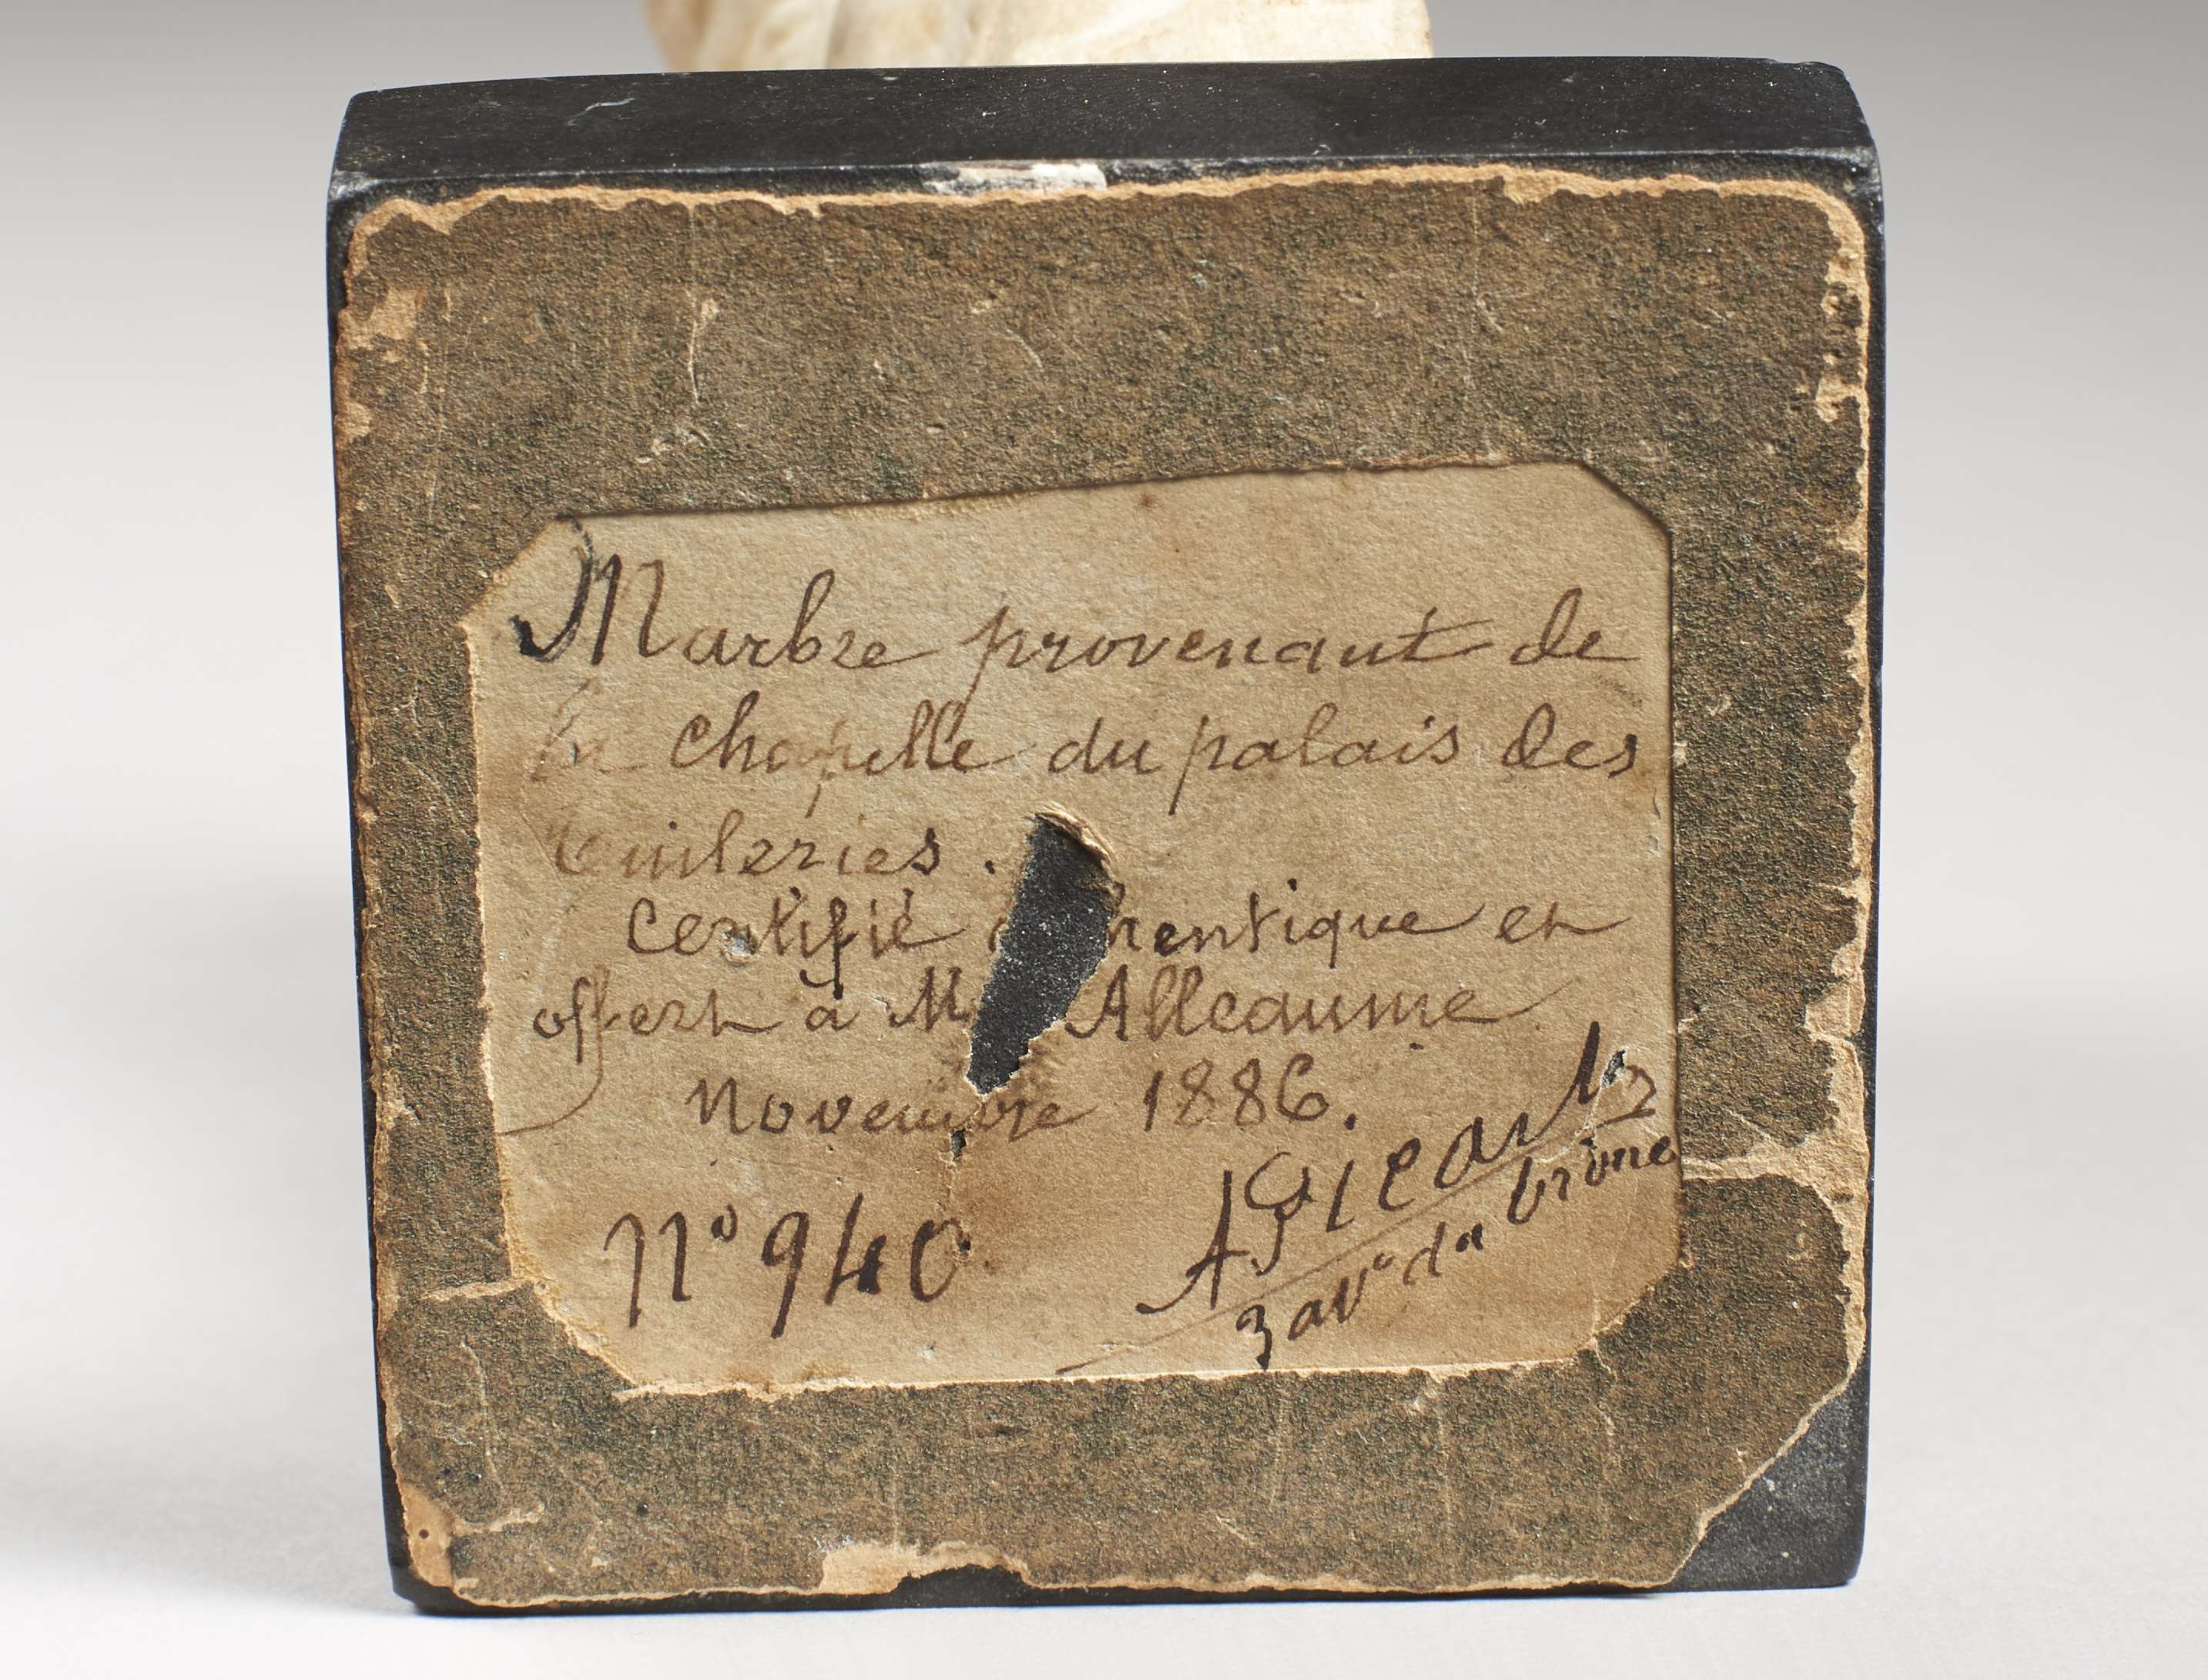 Marbre provenant de
la chapelle du palais des
Tuileries.
Certifié authentique et
offert à M Alleaume
Novembre 1886.
N° 940
3 av